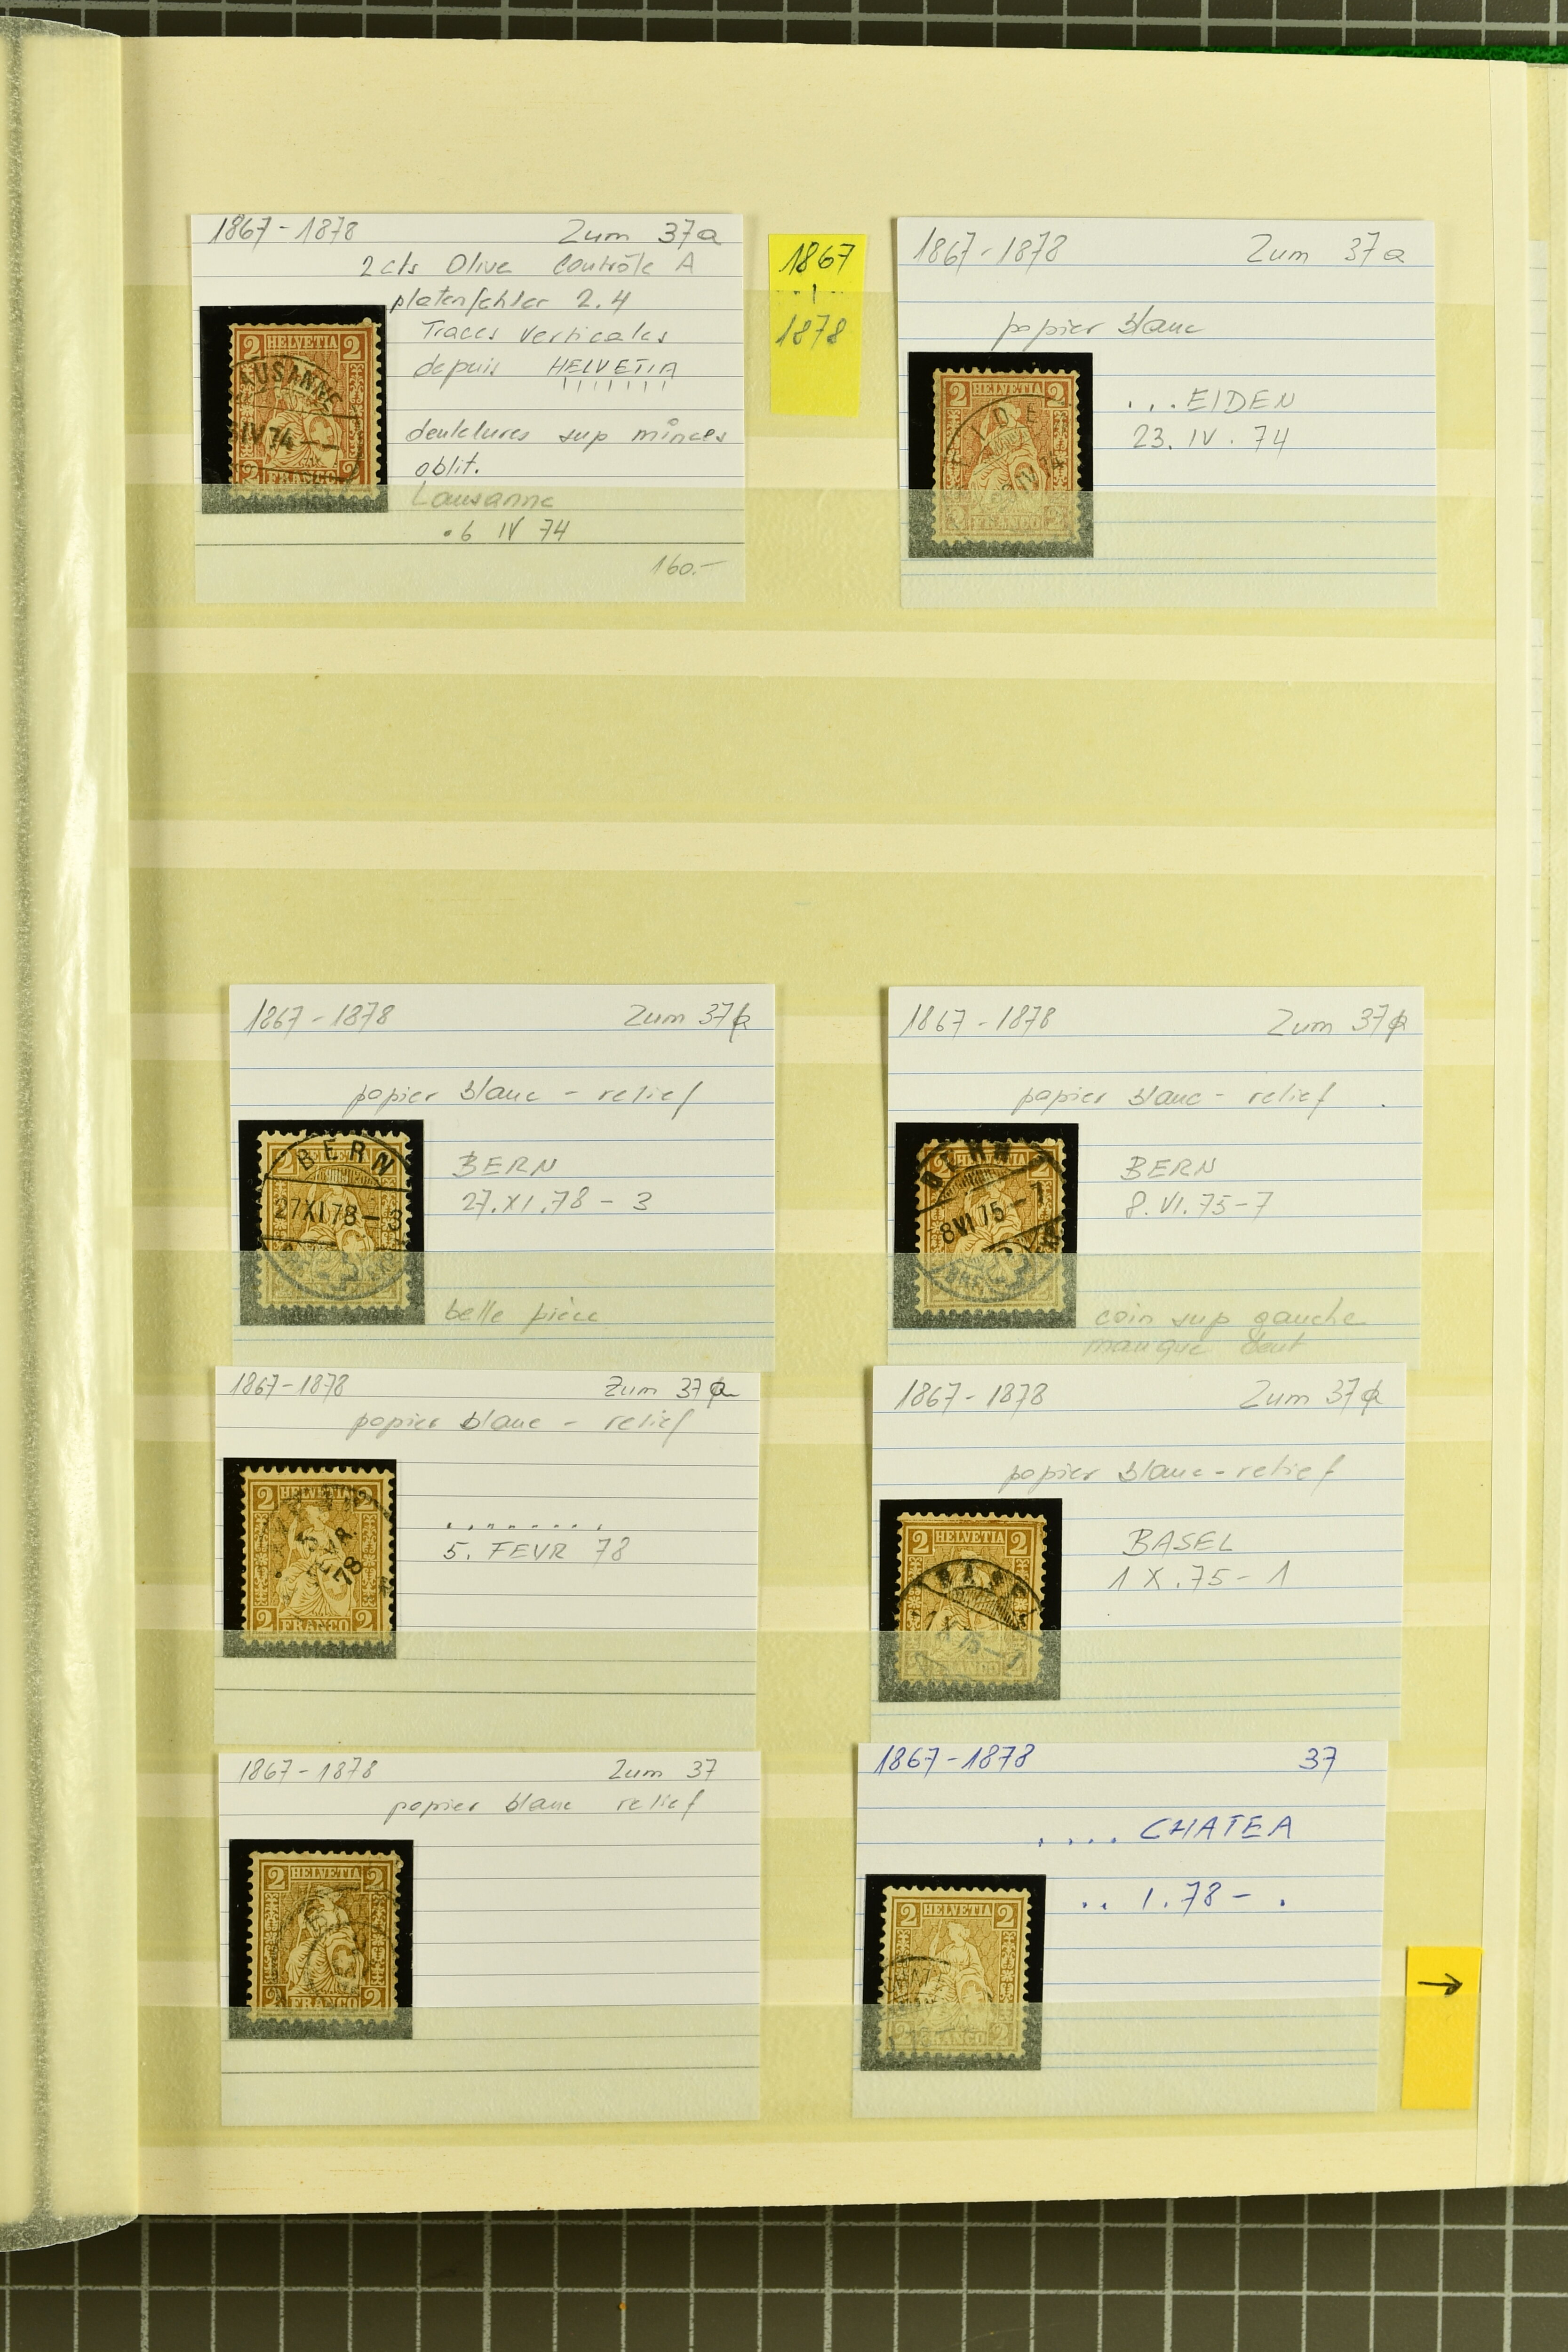 1867-1878 Zum 37a
2cts Olive Contrôle A
platenfehler 2.4
Traces verticales
depuis HELVETIA
dentelures sup minces
oblit.
Lausanne
.6 IV 74
160.-
2 HELVETIA 2
AUSANNE
IV 74 - 7
2 FRANCO 2
1867
1878
1867-1878 Zum 37a
papier blanc
...EIDEN
23. IV. 74
2 HELVETIA 2
EIDE
IV 74
2 FRANCO 2
1867-1878 Zum 37
papier blanc - relief
BERN
27.XI.78 - 3
belle pièce
2
BERN
27 XI 78 - 3
1867-1878 Zum 37
papier blanc - relief
BERN
8.VI.75-7
coin sup gauche
manque dent
2 HELVETIA
BERN
8 VI 75 - 7
1867-1878 Zum 37
papier blanc - relief
........
5. FEVR 78
2 HELVETIA 2
5
78
2 FRANCO 2
1867-1878 Zum 37
papier blanc - relief
BASEL
1 X.75-1
2 HELVETIA 2
BASEL
1 X 75 - 1
2 FRANCO 2
1867-1878 Zum 37
papier blanc relief
2 HELVETIA 2
2 FRANCO 2
1867-1878 37
....CHATEA
.. 1.78- .
2 HELVETIA 2
2 FRANCO 2
→